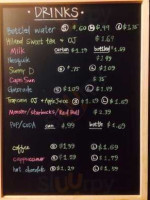 DRINKS
Bottled water $.60 $.99 $1.35
Island Sweet tea - OJ $1.69
Milk carton $1.19 bottled $1.59
Nesquik $1.99
Sunny D $.75 $1.09
Capri Sun $.75
Gatorade $1.09 $1.59
Tropicana OJ + Apple Juice $1.79
Monster/starbucks/Red Bull $2.39
POP/SODA can $.99 bottle $1.69
coffee $1.29
cappuccino $1.29 $1.79
hot chocolate $1.29 $1.79